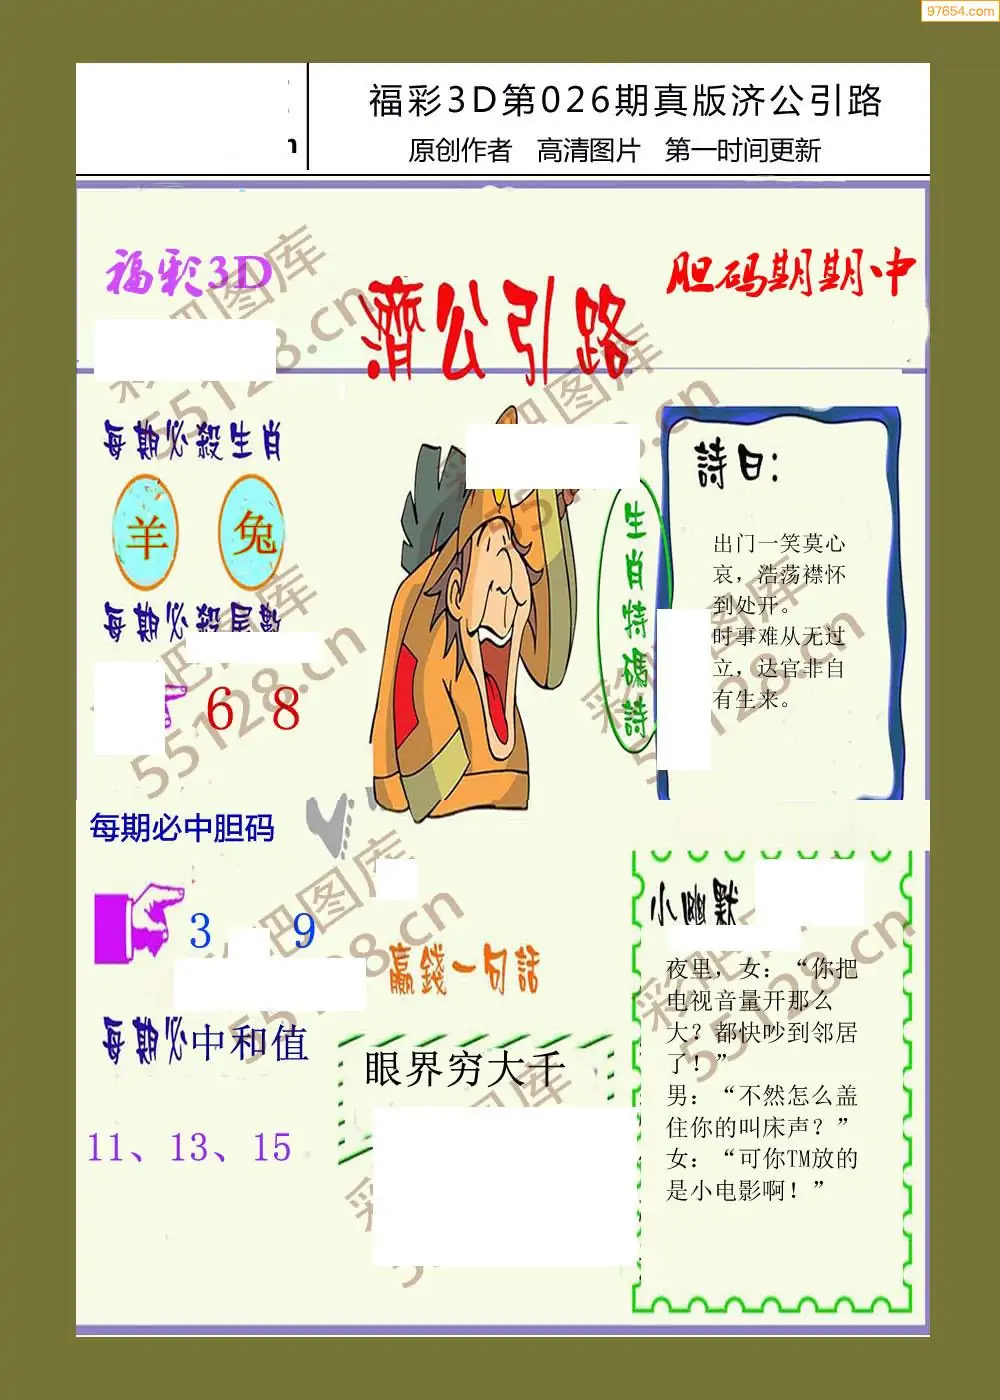 97654.com
福彩3D第026期真版济公引路
原创作者 高清图片 第一时间更新
福彩3D
胆码期期中
濟公引路
每期必殺生肖
羊 兔
每期必殺尾數
6 8
每期必中胆码
3 9
每期必中和值
11、13、15
生肖特碼詩
詩曰：
出门一笑莫心
哀，浩荡襟怀
到处开。
时事难从无过
立，达官非自
有生来。
贏錢一句話
眼界穷大千
小幽默
夜里，女：“你把
电视音量开那么
大？都快吵到邻居
了！”
男：“不然怎么盖
住你的叫床声？”
女：“可你TM放的
是小电影啊！”
彩吧图库
55128.cn
彩吧图库
55128.cn
彩吧图库
55128.cn
彩吧图库
55128.cn
彩吧图库
55128.cn
彩吧图库
55128.cn